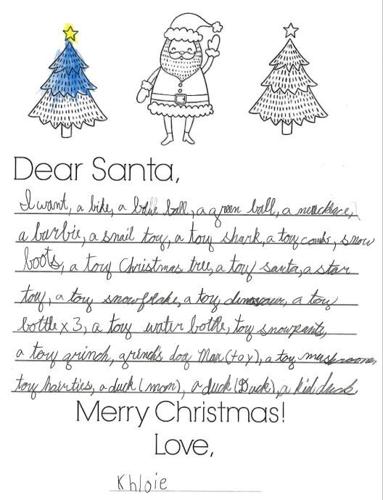 Dear Santa,
I want, a bike, a blue ball, a green ball, a neacklace,
a barbie, a snail toy, a toy shark, a toy comb, snow
boots, a toy Christmas tree, a toy santa, a star
toy, a toy snowflake, a toy dinosaur, a toy
bottle x 3, a toy water bottle, toy snowpants,
a toy grinch, grinch's dog Max (toy), a toy mushroom,
toy hairties, a duck (mom), a duck (Duck), a kid duck
Merry Christmas!
Love,
Khloie